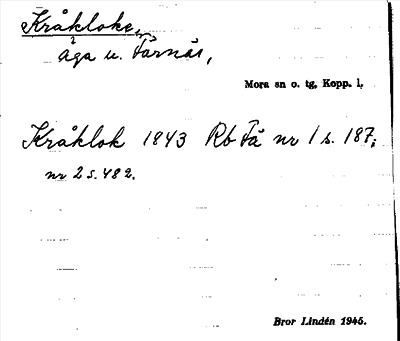 Kråkloke,
äga u. Färnäs,
Mora sn o. tg, Kopp. l.
Kråklok 1843 Rb Få nr 1 s. 187;
nr 2 s. 482.
Bror Lindén 1945.